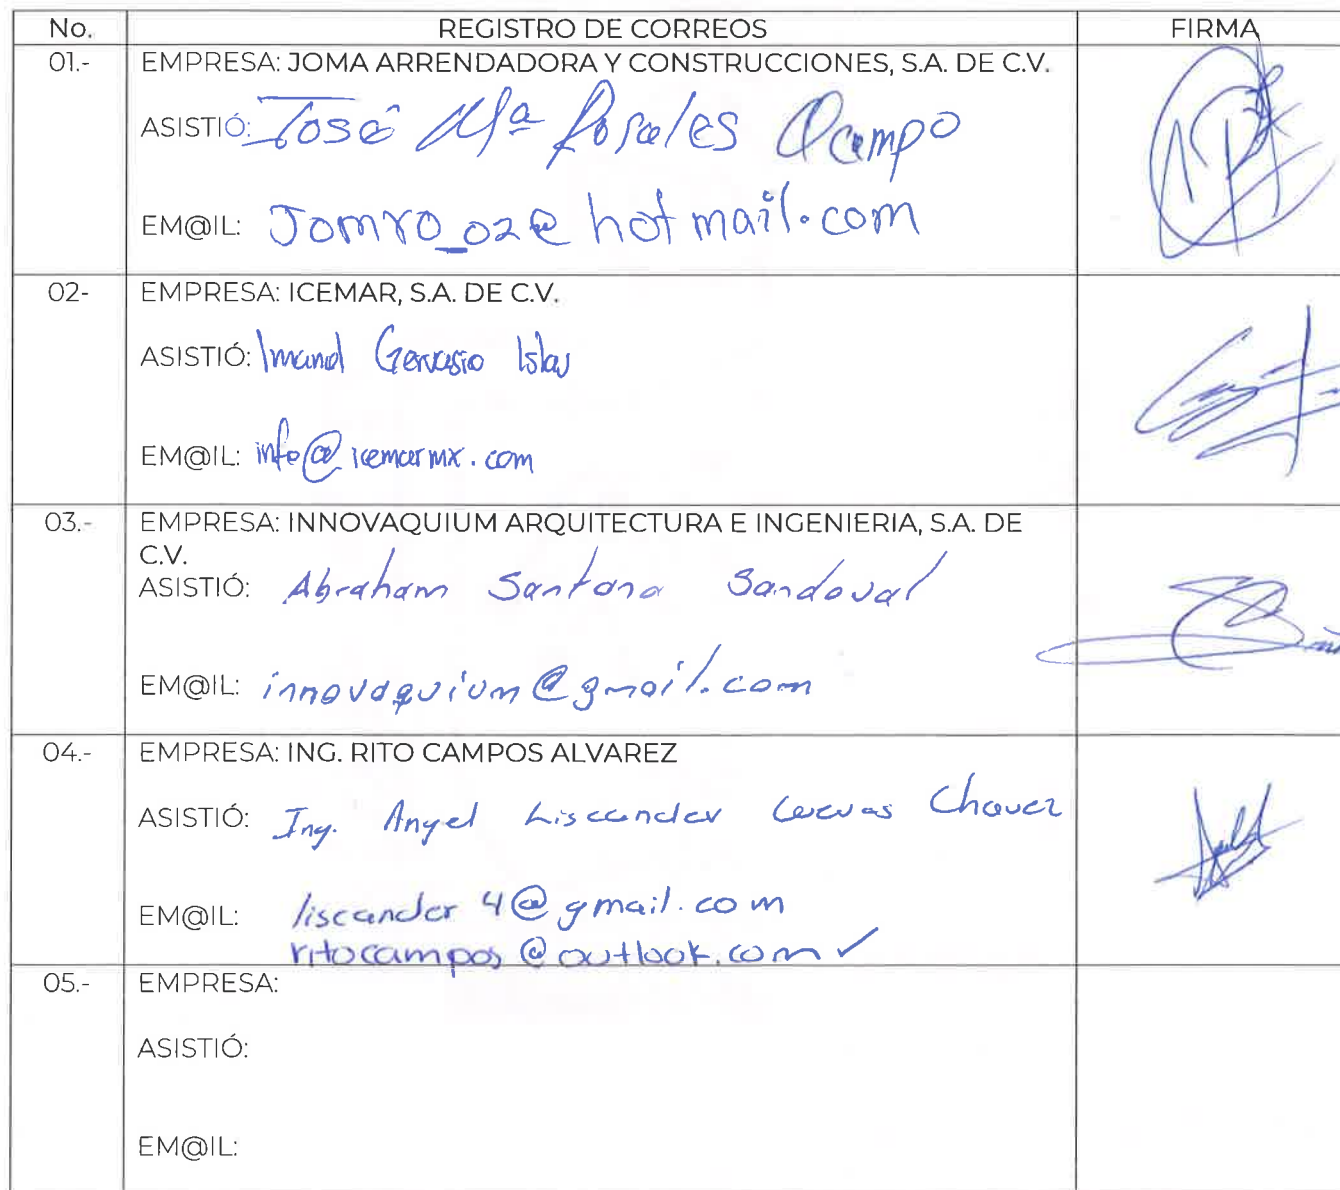 No. REGISTRO DE CORREOS FIRMA
01.- EMPRESA: JOMA ARRENDADORA Y CONSTRUCCIONES, S.A. DE C.V.
ASISTIÓ: José Mª Rosales Ocampo
EM@IL: Jomro_02@hotmail.com
02- EMPRESA: ICEMAR, S.A. DE C.V.
ASISTIÓ: Imanol Gervasio Islas
EM@IL: info@icemarmx.com
03.- EMPRESA: INNOVAQUIUM ARQUITECTURA E INGENIERIA, S.A. DE
C.V.
ASISTIÓ: Abraham Santana Sandoval
EM@IL: innovaquium@gmail.com
04.- EMPRESA: ING. RITO CAMPOS ALVAREZ
ASISTIÓ: Ing. Angel Liscander Cuevas Chavez
EM@IL: liscander4@gmail.com
ritocampos@outlook.com ✓
05.- EMPRESA:
ASISTIÓ:
EM@IL: